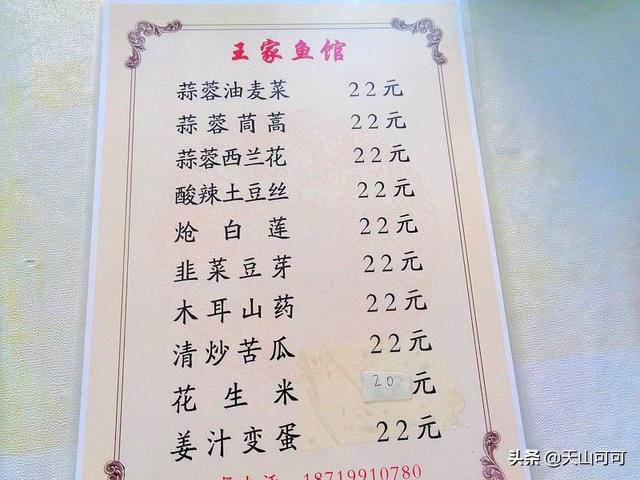 王家鱼馆
蒜蓉油麦菜 22元
蒜蓉茼蒿 22元
蒜蓉西兰花 22元
酸辣土豆丝 22元
炝白莲 22元
韭菜豆芽 22元
木耳山药 22元
清炒苦瓜 22元
花生米 20元
姜汁变蛋 22元
18719910780
头条 @天山可可